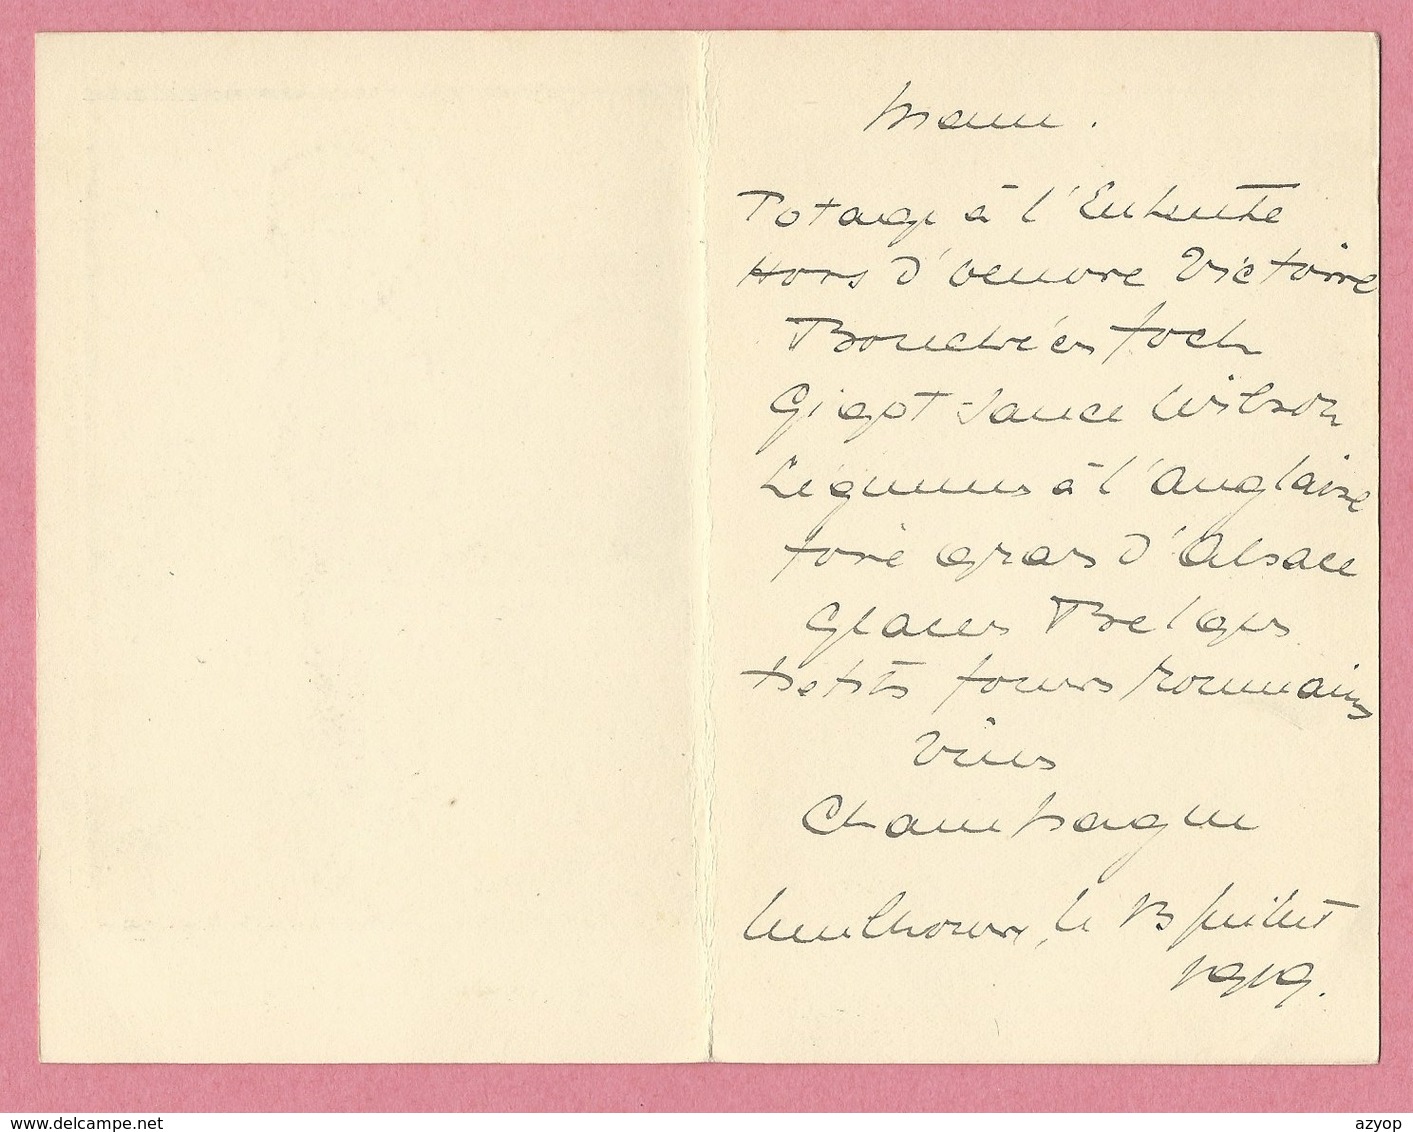 Menu.
Potage à l'Entente
Hors d'oeuvre Victoire
Bouchées Foch
Gigot sauce Wilson
Légumes à l'anglaise
foie gras d'Alsace
Glaces Belges
Petits fours Roumains
Vins
Champagne
Mulhouse, le 13 juillet
1919.
www.delcampe.net
azyop